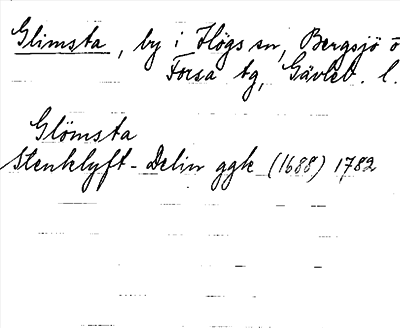 Glimsta, by i Högs sn, Bergsjö o
Forsa tg, Gävleb. l.
Glömsta
Stenklyft- Delin ggk (1688) 1782